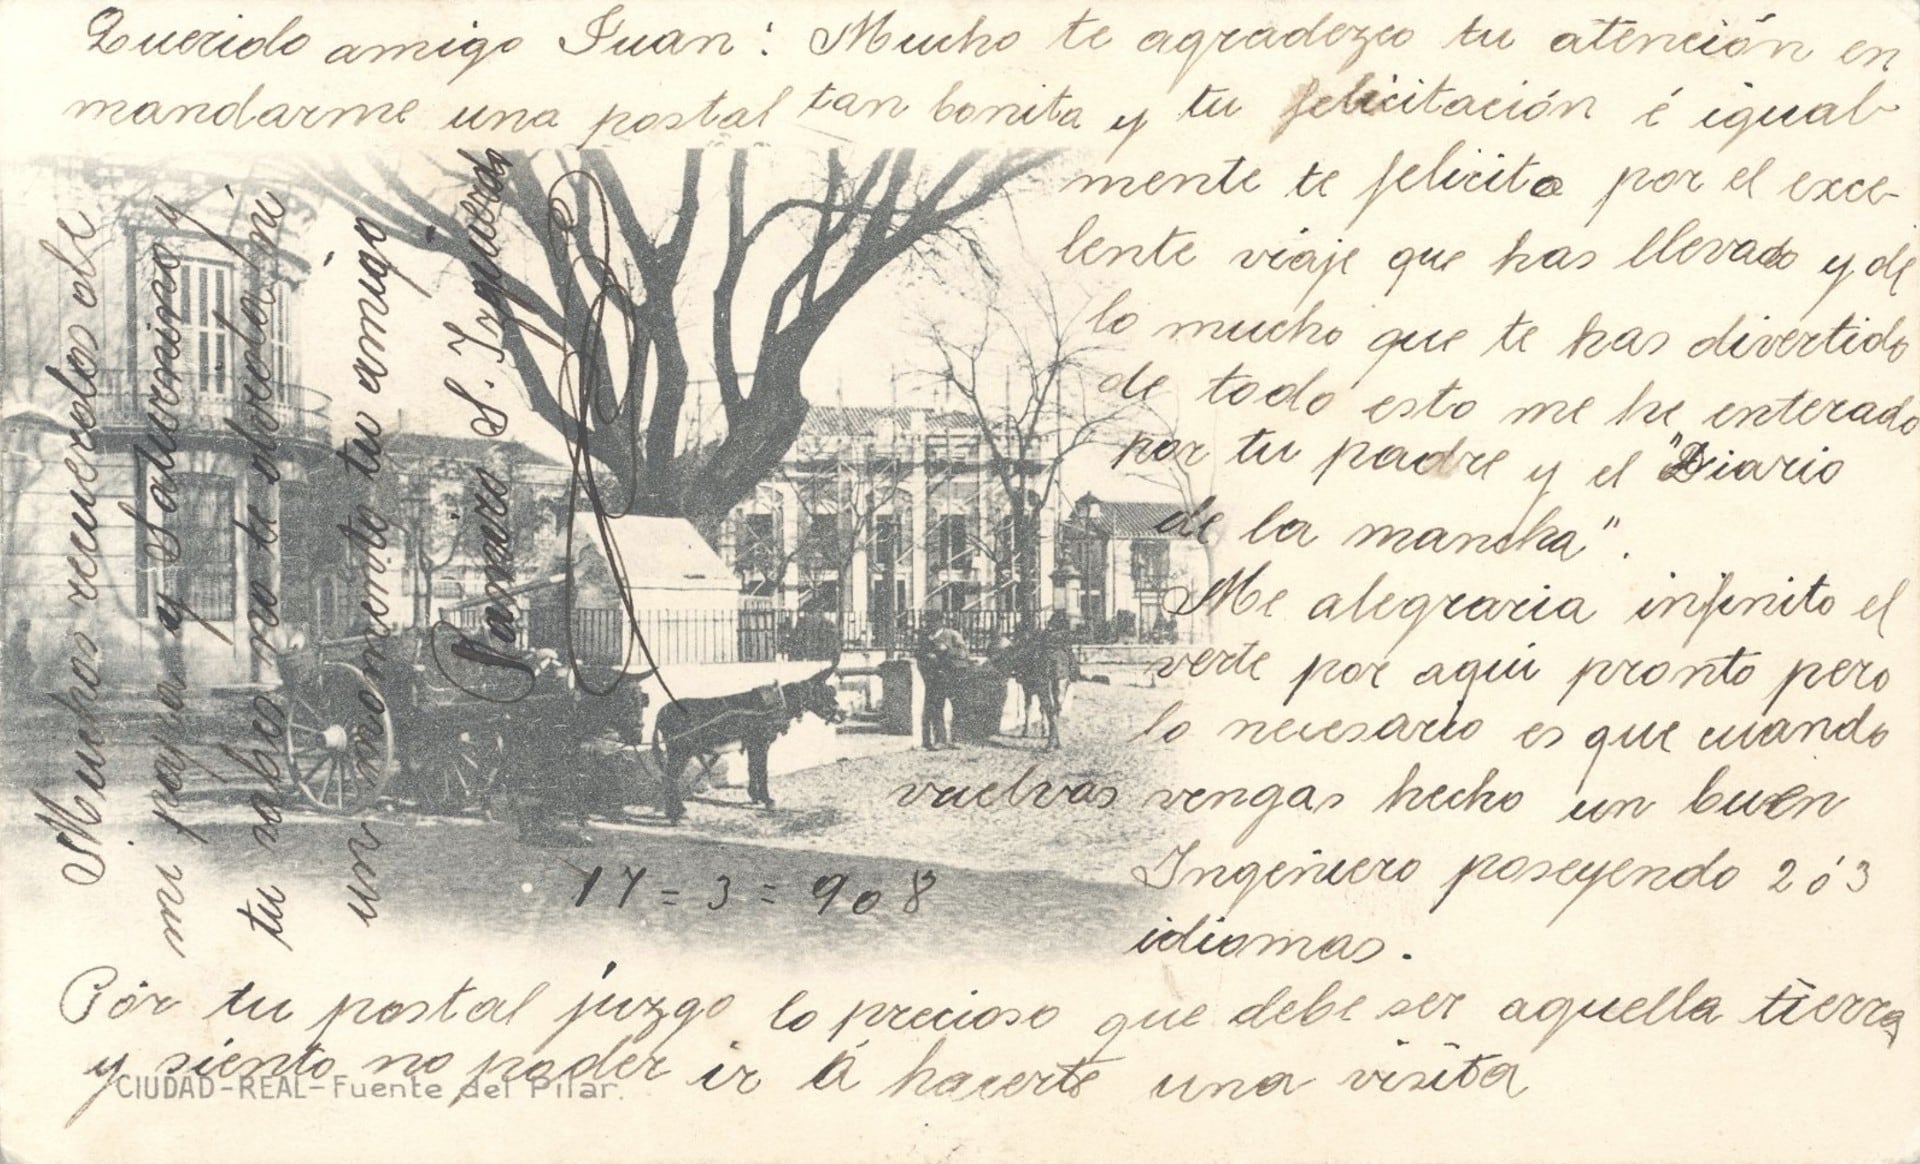 Querido amigo Juan: Mucho te agradezco tu atención en
mandarme una postal tan bonita y tu felicitación é igual-
mente te felicito por el exce-
lente viaje que has llevado y de
lo mucho que te has divertido
de todo esto me he enterado
por tu padre y el "Diario
de la mancha".
Me alegraria infinito el
verte por aqui pronto pero
lo necesario es que cuando
vuelvas vengas hecho un buen
Ingeniero poseyendo 2 ó 3
idiomas.
Pór tu postal juzgo lo precioso que debe ser aquella tierra
y siento no poder ir á hacerte una visita
Muchos recuerdos de
mi papa y Saturnino y
tu sabes no te olvida ni
un momento tu amigo
Ramiro S. Izquierdo
17=3=908
CIUDAD-REAL-Fuente del Pilar.